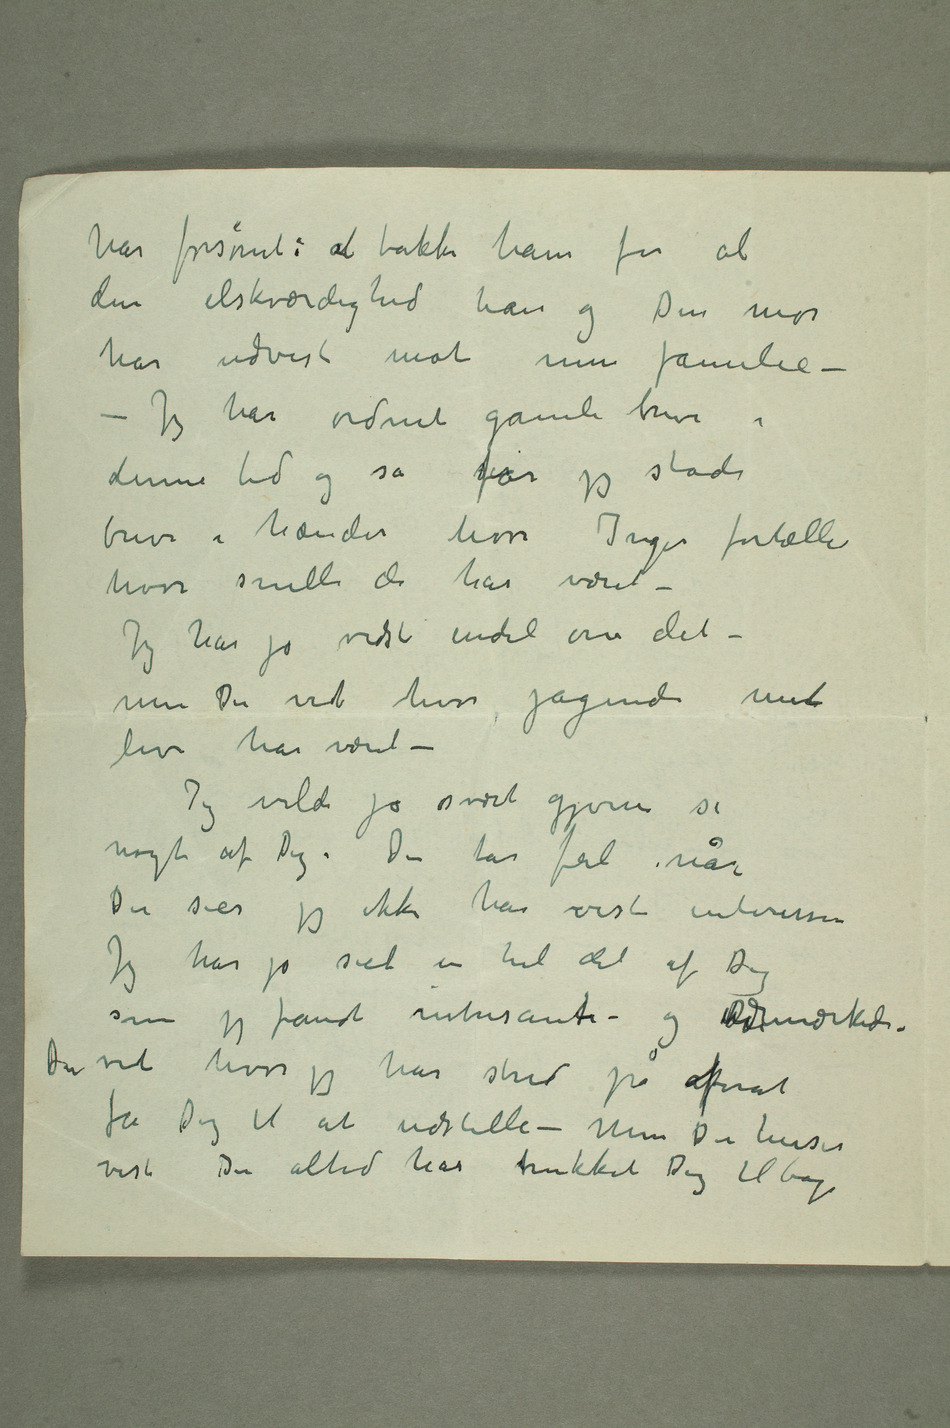 har forsømt i at takke ham for al
den elskværdighed han og Din mor
har udvist mot min familie –
– Jeg har ordnet gamle breve i
denne tid og så får jeg stadi
breve i hænder hvor Inger fortæller
hvor snille de har været –
Jeg har jo vidst endel om det –
men Du vet hvor jagende mit
liv har været –
Jeg vilde jo svært gjerne se
noget af Dig. Du tar feil når
Du sier jeg ikke har vist interesse
Jeg har jo seet en hel del af Dig
som jeg fandt interesante – og udmærkede.
Du vet hvor jeg har stred på forat
få Dig til at udstille – Men Du husker
vist Du altid har trukket Dig tilbage